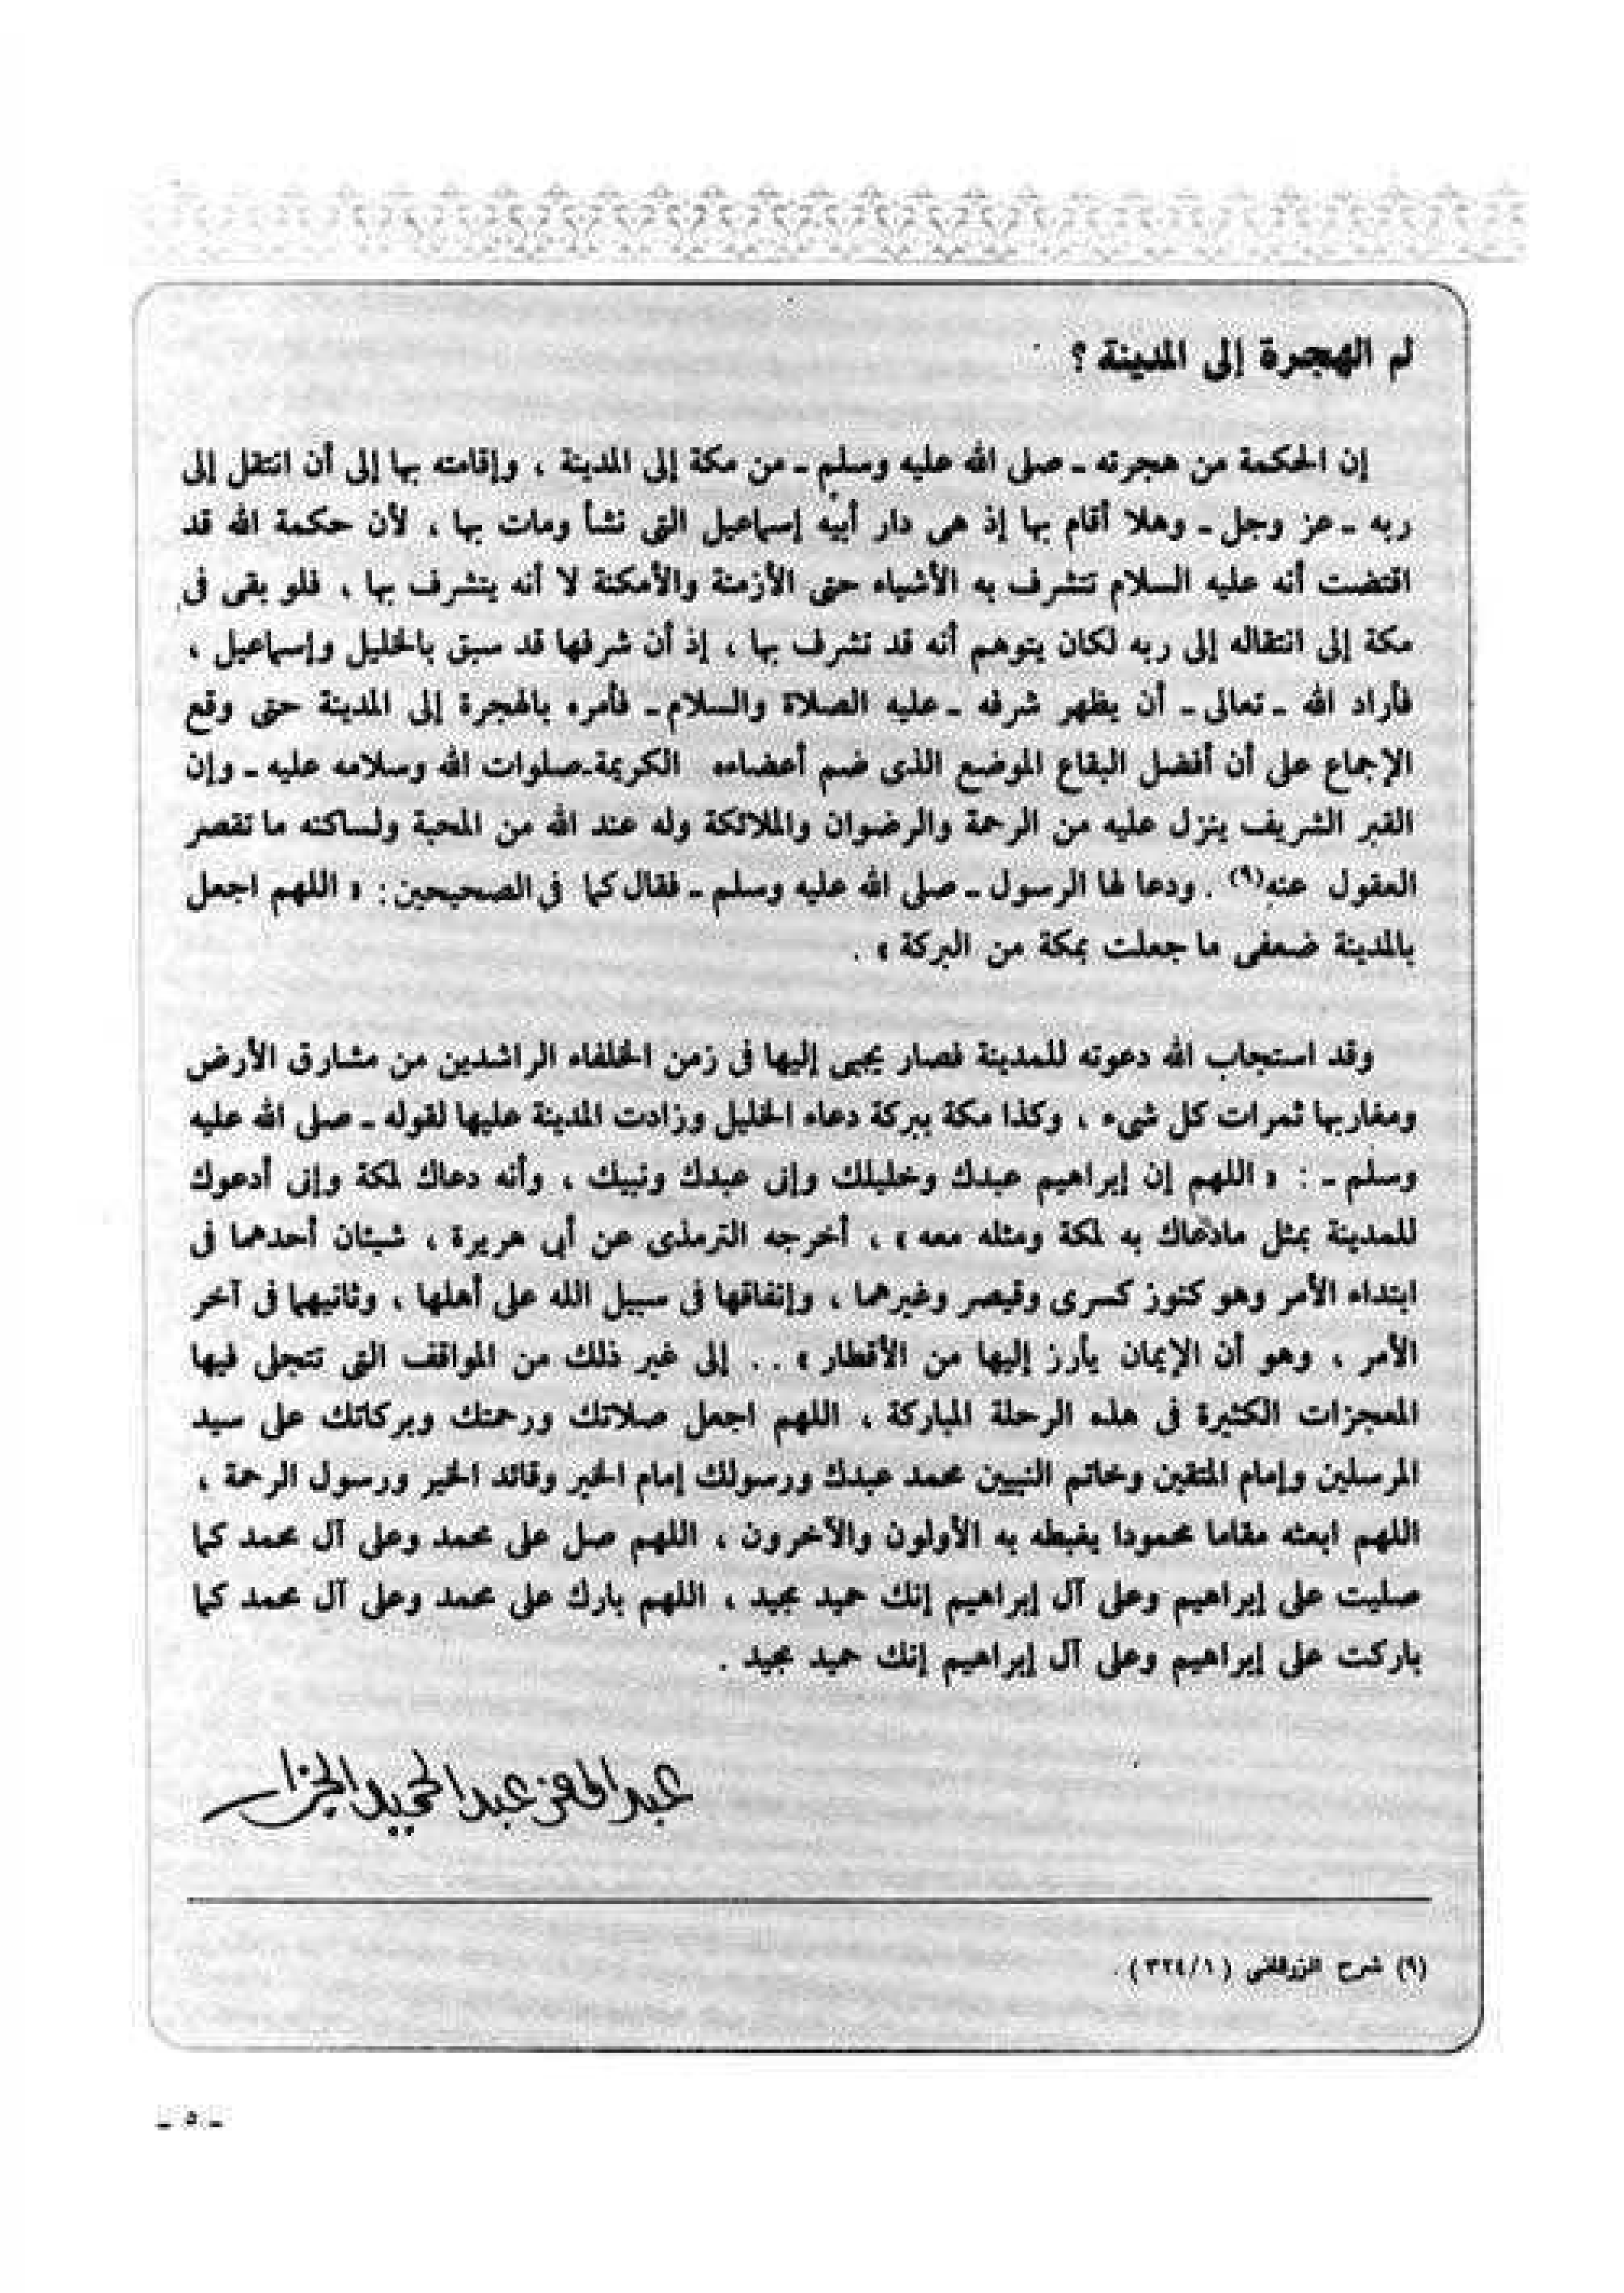 لم الهجرة إلى المدينة ؟
إن الحكمة من هجرته ـ صلى الله عليه وسلم ـ من مكة إلى المدينة ، وإقامته بها إلى أن انتقل إلى
ربه ـ عز وجل ـ وهلا أقام بها إذ هى دار أبيه إسماعيل التى نشأ ومات بها ، لأن حكمة الله قد
اقتضت أنه عليه السلام تتشرف به الأشياء حتى الأزمنة والأمكنة لا أنه يتشرف بها ، فلو بقى فى
مكة إلى انتقاله إلى ربه لكان يتوهم أنه قد تشرف بها ، إذ أن شرفها قد سبق بالخليل وإسماعيل ،
فأراد الله ـ تعالى ـ أن يظهر شرفه ـ عليه الصلاة والسلام ـ فأمره بالهجرة إلى المدينة حتى وقع
الإجماع على أن أفضل البقاع الموضع الذى ضم أعضاءه الكريمة ـ صلوات الله وسلامه عليه ـ وإن
القبر الشريف ينزل عليه من الرحمة والرضوان والملائكة وله عند الله من المحبة ولساكنه ما تقصر
العقول عنه(٩) . ودعا لها الرسول ـ صلى الله عليه وسلم ـ فقال كما فى الصحيحين : « اللهم اجعل
بالمدينة ضعفى ما جعلت بمكة من البركة » .
وقد استجاب الله دعوته للمدينة فصار يجبى إليها فى زمن الخلفاء الراشدين من مشارق الأرض
ومغاربها ثمرات كل شىء ، وكذا مكة ببركة دعاء الخليل وزادت المدينة عليها لقوله ـ صلى الله عليه
وسلم ـ : « اللهم إن إبراهيم عبدك وخليلك وإنى عبدك ونبيك ، وأنه دعاك لمكة وإنى أدعوك
للمدينة بمثل مادعاك به لمكة ومثله معه » ، أخرجه الترمذى عن أبي هريرة ، شيئان أحدهما فى
ابتداء الأمر وهو كنوز كسرى وقيصر وغيرهما ، وإنفاقها فى سبيل الله على أهلها ، وثانيهما فى آخر
الأمر ، وهو أن الإيمان يأرز إليها من الأقطار » . . إلى غير ذلك من المواقف التى تتجلى فيها
المعجزات الكثيرة فى هذه الرحلة المباركة ، اللهم اجعل صلاتك ورحمتك وبركاتك على سيد
المرسلين وإمام المتقين وخاتم النبيين محمد عبدك ورسولك إمام الخير وقائد الخير ورسول الرحمة ،
اللهم ابعثه مقاما محمودا يغبطه به الأولون والآخرون ، اللهم صل على محمد وعلى آل محمد كما
صليت على إبراهيم وعلى آل إبراهيم إنك حميد مجيد ، اللهم بارك على محمد وعلى آل محمد كما
باركت على إبراهيم وعلى آل إبراهيم إنك حميد مجيد .
عبد المعز عبد الحميد الجزار
(٩) شرح الزرقانى (١/٣٢٤) .
ـ ٥ ـ